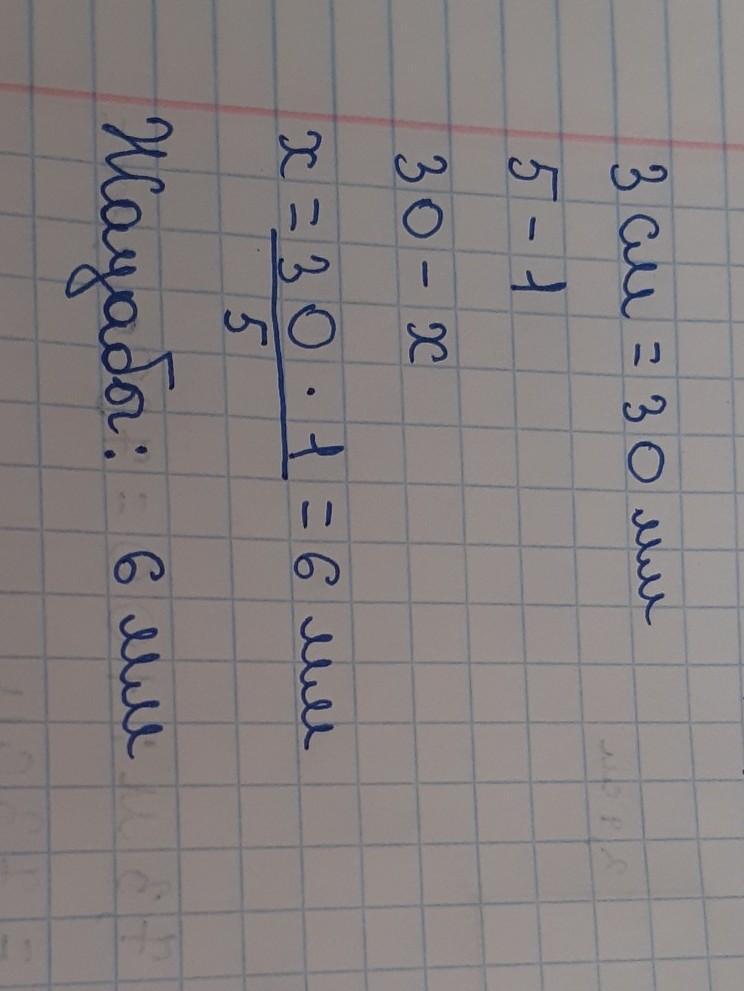 3 см = 30 мм
5 - 1
30 - x
x = 30 · 1 / 5 = 6 мм
Жауабы: 6 мм